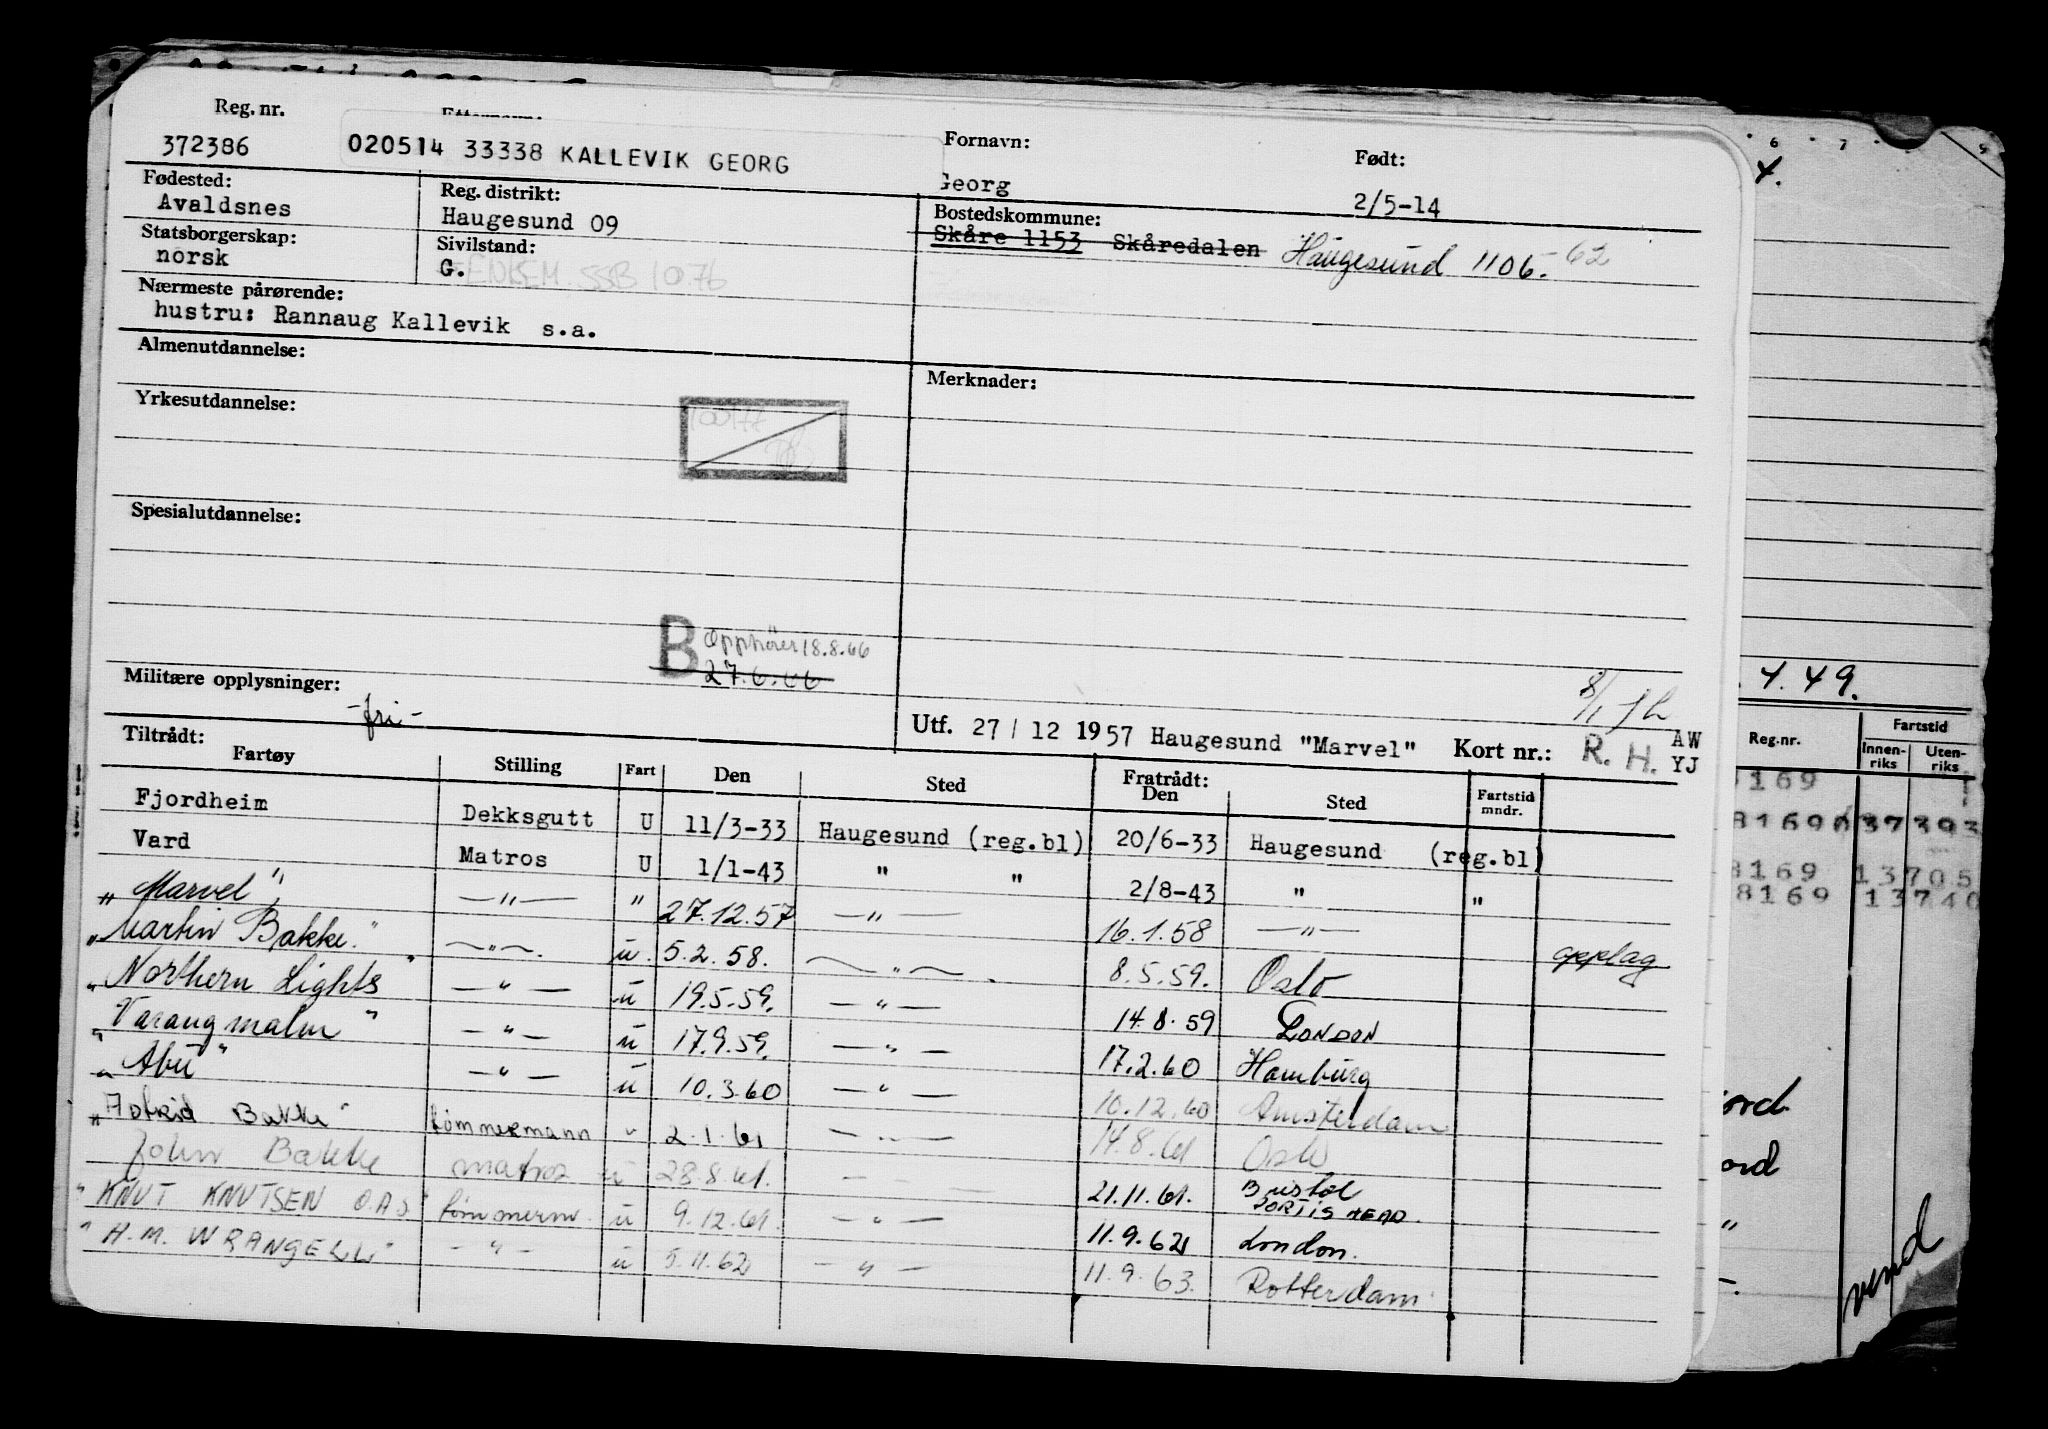 Reg. nr.
372386
020514 33338 KALLEVIK GEORG
Fornavn:
Georg
Født:
2/5-14
Fødested:
Avaldsnes
Reg. distrikt:
Haugesund 09
Bostedskommune:
Skåre 1153 Skåredalen Haugesund 1106. 62
Statsborgerskap:
norsk
Sivilstand:
G. ENKEM. SSB 10.76
Nærmeste pårørende:
hustru: Rannaug Kallevik s.a.
Almenutdannelse:
Merknader:
Yrkesutdannelse:
Spesialutdannelse:
B Opphører 18.8.66
27.6.66
Militære opplysninger:
-fri-
Utf. 27/12 1957 Haugesund "Marvel" Kort nr.: R. H. AW YJ
Tiltrådt:
Fartøy Stilling Fart Den Sted Fratrådt: Den Sted Fartstid mndr.
Fjordheim Dekksgutt U 11/3-33 Haugesund (reg.bl) 20/6-33 Haugesund (reg.bl)
Vard Matros U 1/1-43 " " 2/8-43 " "
"Marvel" —"— " 27.12.57 —"— 16.1.58 —"—
"Martin Bakke" —"— u. 5.2.58. —"— 8.5.59. Oslo opplag
"Northern Lights" —"— u 19.5.59. —"— 14.8.59 London
"Varangmalm" —"— u 17.9.59. —"— 17.2.60 Hamburg
"Abu" —"— u 10.3.60 —"— 10.12.60 Amsterdam
"Astrid Bakke" tømmermann " 2.1.61 —"— 14.8.61 Oslo
John Bakke matros u 28.8.61. — — 21.11.61. Bristol PORTISHEAD.
"KNUT KNUTSEN O.A.S" tømmerm. u 9.12.61. —"— 11.9.62 London.
"H.M. WRANGELL" —"— u 5.11.62 —"— 11.9.63. Rotterdam.
4.
.4.49.
Reg.nr. Fartstid
Innenriks Utenriks
8169
8169 37393
8169 13705
8169 13740
ord.
ord
"
vend